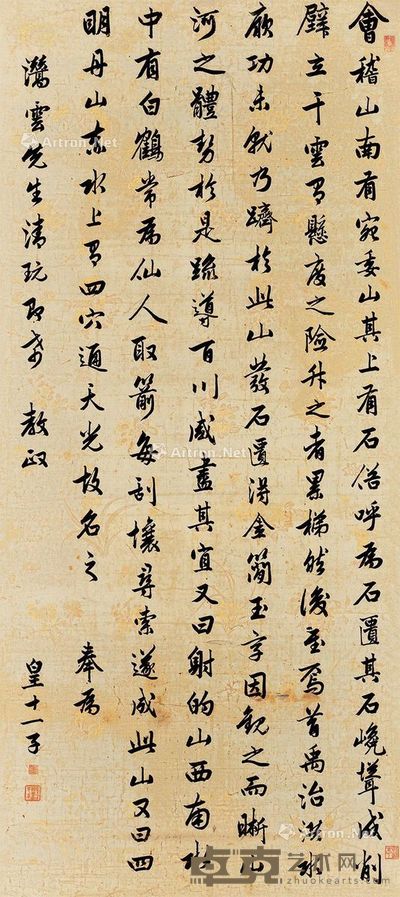 會稽山南有宛委山其上有石俗呼為石匱其石嶢聳成削
壁立干雲有懸度之險升之者累梯然後至焉昔禹治洪水
厥功未就乃躋於此山發石匱得金簡玉字因觀之而晰山
河之體勢於是疏導百川咸盡其宜又曰射的山西南水
中有白鶴常為仙人取箭每刮壤尋索遂成此山又曰四
明丹山赤水上有四穴通天光故名之 奉為
雲先生清玩即希 教政
皇十一子
Artron.Net
卓克艺术网
www.zhuokearts.com